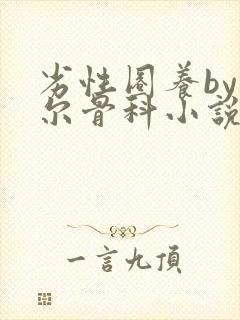 劣性圈養by
尔骨科小說
一言九頂